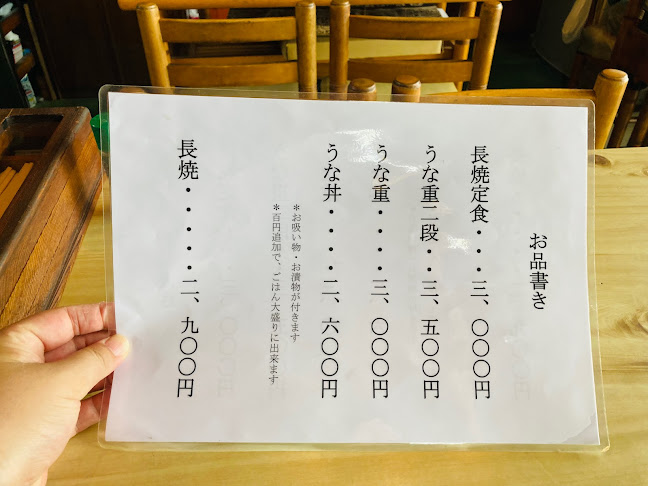 お品書き
長焼定食・・・三、〇〇〇円
うな重二段・・三、五〇〇円
うな重・・・・三、〇〇〇円
うな丼・・・・二、六〇〇円
＊お吸い物・お漬物が付きます
＊百円追加で、ごはん大盛りに出来ます
長焼・・・・・二、九〇〇円